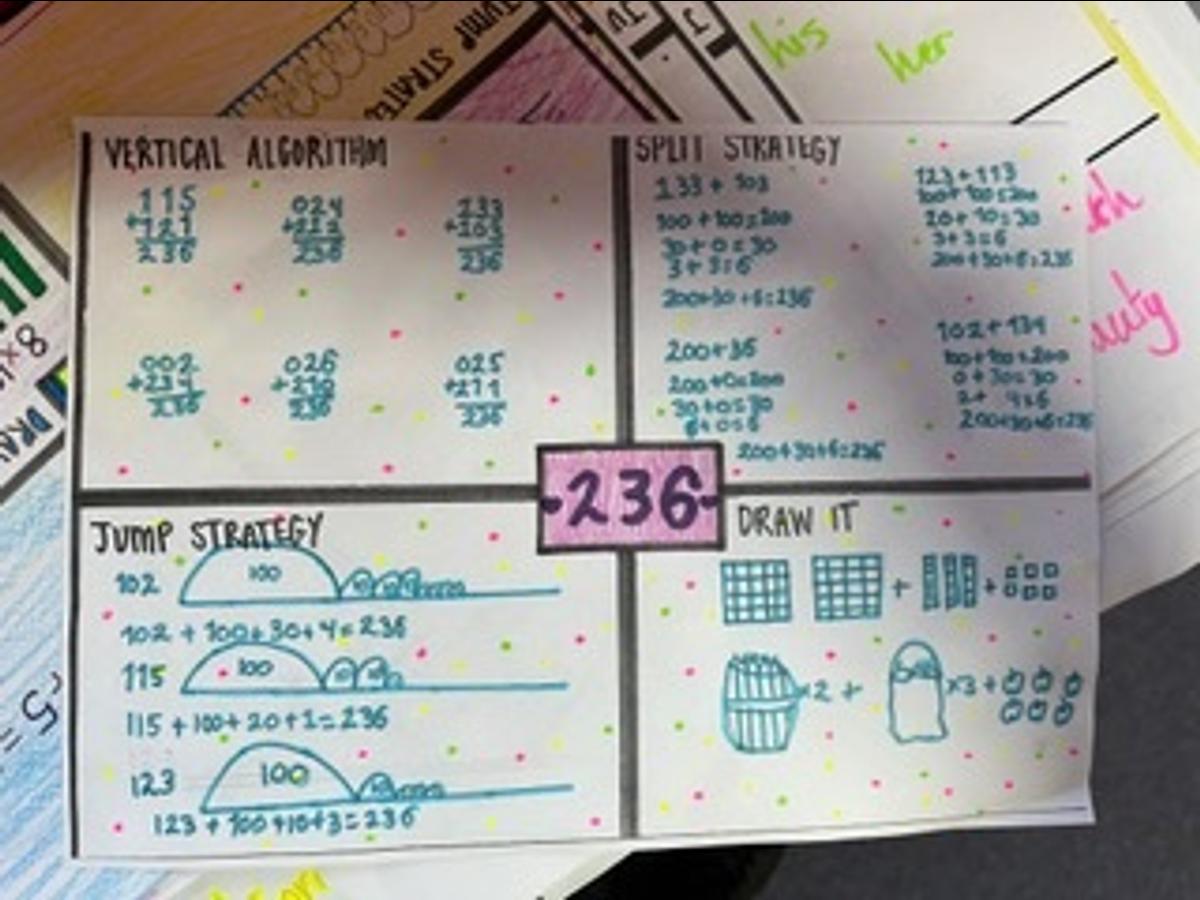 JUMP STRATEG
JU
J
his
her
VERTICAL ALGORITHM
115
+121
236
024
+212
236
233
+
236
002
+234
236
026
+210
236
025
+211
236
SPLIT STRATEGY
133 + 103
100 + 100 = 200
30 + 0 = 30
3 + 3 = 6
200+30+6=236
123 + 113
100+100=200
20 + 10 = 30
3 + 3 = 6
200+30+6=236
200+36
200+0=200
30+0=30
6+0=6
200+30+6=236
102 + 134
100+100=200
0+30=30
2+ 4=6
200+30+6=236
-236-
JUMP STRATEGY
102
100
102 + 100 + 30 + 4 = 236
115
100
115 + 100 + 20 + 1 = 236
123
100
123 + 100 + 10 + 3 = 236
DRAW IT
+ +
x2 + x3 +
auty
8
DRA
5 =